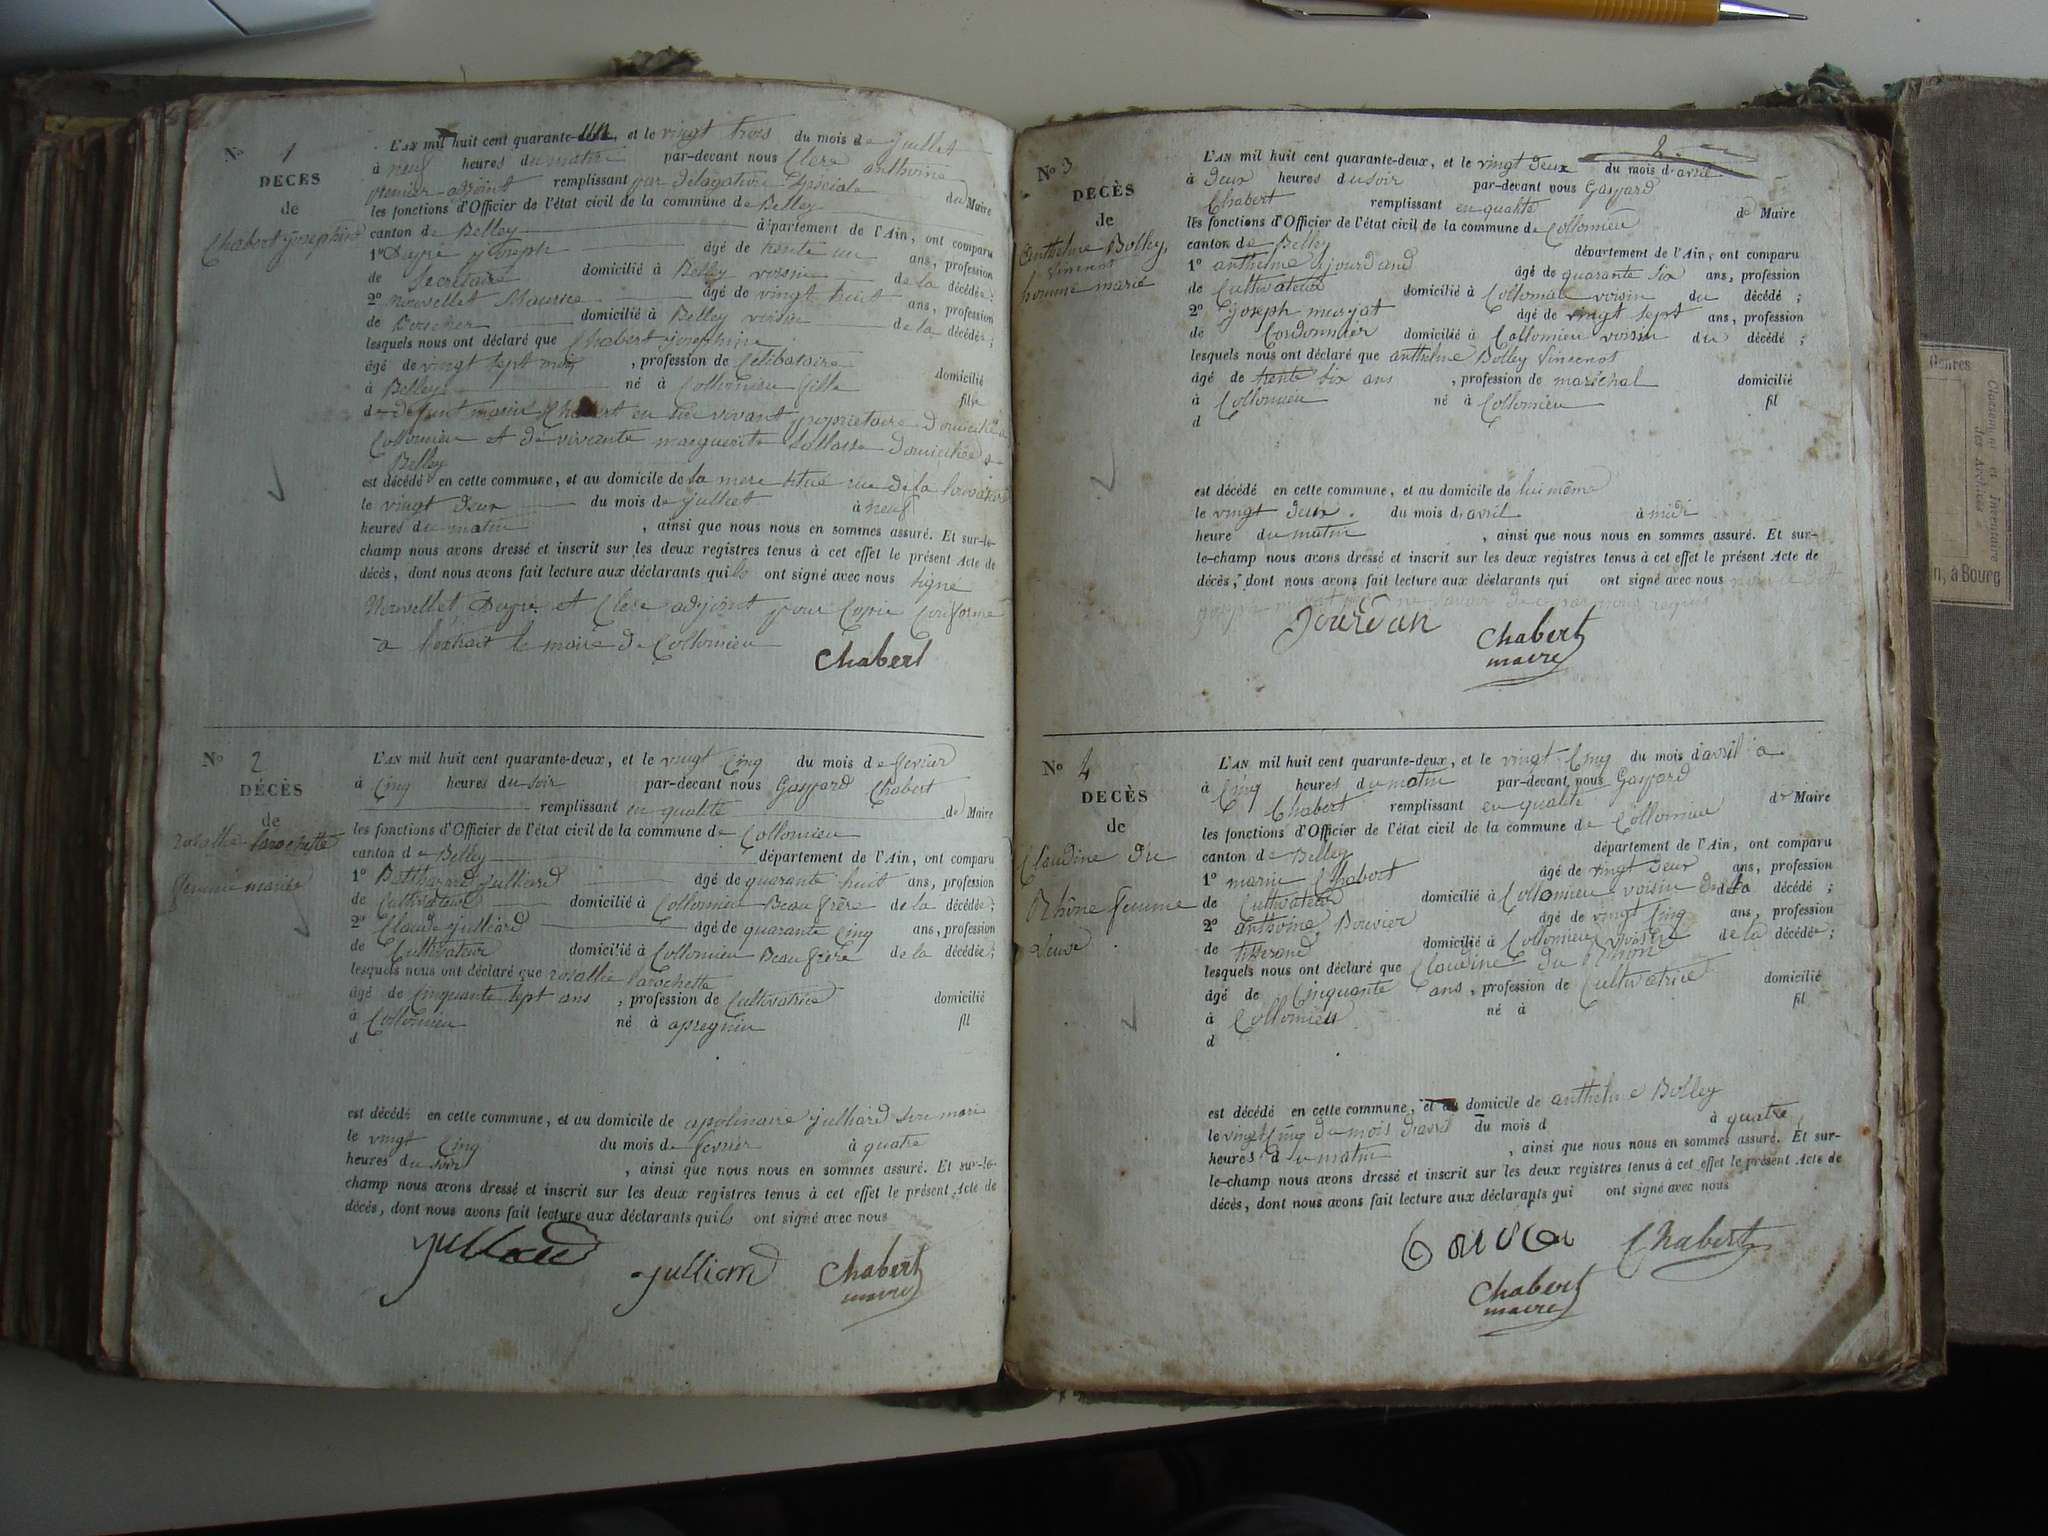 N° 1
DECÈS
de
Chabert josephine
L'AN mil huit cent quarante-un, et le vingt trois du mois de juillet
à neuf heures du matin par-devant nous Clerc anthoine
premier adjoint remplissant par délégation spéciale de Maire
les fonctions d'Officier de l'état civil de la commune de Belley
canton de Belley département de l'Ain, ont comparu
1° joseph âgé de trente un ans, profession
de Secrétaire domicilié à Belley voisin de la décédée;
2° nouvellet Maurice âgé de vingt huit ans, profession
de domicilié à Belley voisin de la décédée;
lesquels nous ont déclaré que Chabert josephine
âgé de vingt sept mois, profession de Célibataire domicilié
à Belley né à Collomieu fille fil
de défunt marin Chabert en son vivant propriétaire domicilié à
Collomieu et de vivante marguerite domiciliée à
Belley
est décédé en cette commune, et au domicile de la mere rue de la
le vingt deux du mois de juillet à neuf
heures du matin, ainsi que nous nous en sommes assuré. Et sur-le-
champ nous avons dressé et inscrit sur les deux registres tenus à cet effet le présent Acte de
décès, dont nous avons fait lecture aux déclarants qui ils ont signé avec nous signé
Nouvellet et Clerc adjoint pour Copie Conforme
a l'extrait le maire de Collomieu
Chabert
N° 2
DÉCÈS
de
rosallie Larochette
femme mariée
L'AN mil huit cent quarante-deux, et le vingt Cinq du mois de fevrier
à Cinq heures du soir par-devant nous Gaspard Chabert
remplissant en qualité de Maire
les fonctions d'Officier de l'état civil de la commune de Collomieu
canton de Belley département de l'Ain, ont comparu
1° Balthazard julliard âgé de quarante huit ans, profession
de Cultivateur domicilié à Collomieu Beau frère de la décédée;
2° Claude julliard âgé de quarante Cinq ans, profession
de Cultivateur domicilié à Collomieu Beau frère de la décédée;
lesquels nous ont déclaré que rosallie Larochette
âgé de Cinquante sept ans, profession de Cultivatrice domicilié
à Collomieu né à apregnin fil
d
est décédé en cette commune, et au domicile de apolinaire julliard son mari
le vingt Cinq du mois de fevrier à quatre
heures du soir, ainsi que nous nous en sommes assuré. Et sur-le-
champ nous avons dressé et inscrit sur les deux registres tenus à cet effet le présent Acte de
décès, dont nous avons fait lecture aux déclarants qui ils ont signé avec nous
julliard
julliard
Chabert
maire
2
N° 3
DECÈS
de
anthelme Bolley
Vincenot
homme marié
L'AN mil huit cent quarante-deux, et le vingt deux du mois d'avril
à deux heures du soir par-devant nous Gaspard
Chabert remplissant en qualité de Maire
les fonctions d'Officier de l'état civil de la commune de Collomieu
canton de Belley département de l'Ain, ont comparu
1° anthelme jourdand âgé de quarante six ans, profession
de Cultivateur domicilié à Collomieu voisin du décédé;
2° joseph merjat âgé de vingt sept ans, profession
de Cordonnier domicilié à Collomieu voisin du décédé;
lesquels nous ont déclaré que anthelme Bolley Vincenot
âgé de trente six ans, profession de maréchal domicilié
à Collomieu né à Collomieu fil
d
est décédé en cette commune, et au domicile de lui même
le vingt deux du mois d'avril à midi
heure du matin, ainsi que nous nous en sommes assuré. Et sur-
le-champ nous avons dressé et inscrit sur les deux registres tenus à cet effet le présent Acte de
décès, dont nous avons fait lecture aux déclarants qui ont signé avec nous
joseph requis
Jourdan
Chabert
maire
N° 4
DECÈS
de
Claudine du
Rhône femme
veuve
L'AN mil huit cent quarante-deux, et le vingt Cinq du mois d'avril a
à Cinq heures du matin par-devant nous Gaspard
Chabert remplissant en qualité de Maire
les fonctions d'Officier de l'état civil de la commune de Collomieu
canton de Belley département de l'Ain, ont comparu
1° marin Chabert âgé de vingt deux ans, profession
de Cultivateur domicilié à Collomieu voisin de la décédé;
2° anthoine Bouvier âgé de vingt Cinq ans, profession
de tisserand domicilié à Collomieu voisin de la décédée;
lesquels nous ont déclaré que Claudine du Rhon
âgé de Cinquante ans, profession de Cultivatrice domicilié
à Collomieu né à fil
d
est décédé en cette commune, et au domicile de anthelme Bolley
le vingt Cinq du mois d'avril du mois d à quatre
heures du matin, ainsi que nous nous en sommes assuré. Et sur-
le-champ nous avons dressé et inscrit sur les deux registres tenus à cet effet le présent Acte de
décès, dont nous avons fait lecture aux déclarants qui ont signé avec nous
Chabert
Chabert
maire
Genres
Classement et Inventaire
des Archives
n, à Bourg